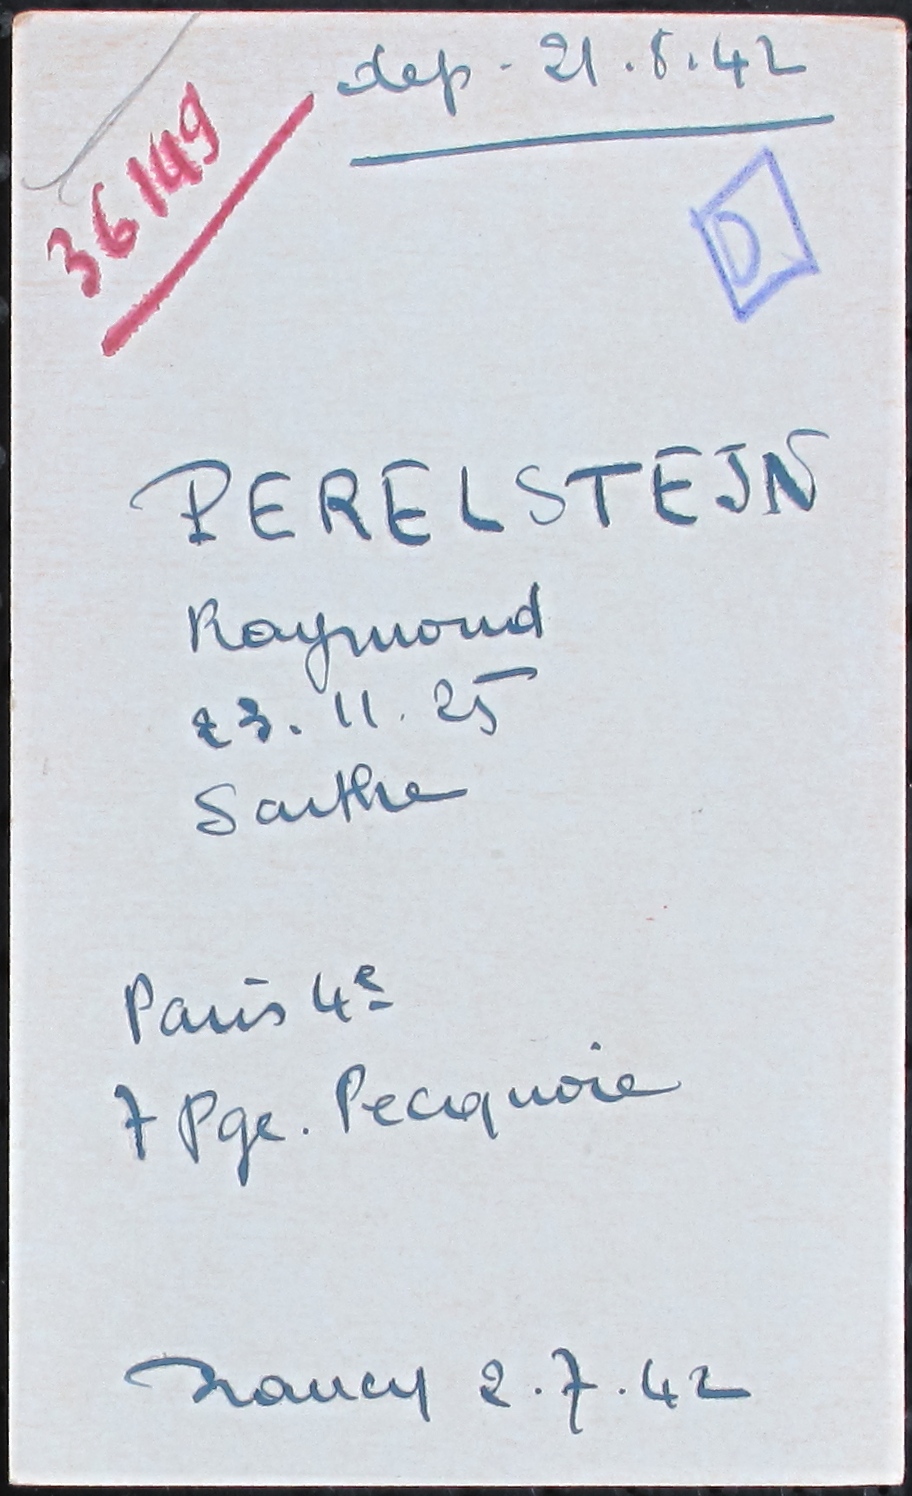 dep. 21.8.42
36149
D
PERELSTEJN
Raymond
23.11.25
Sarthe
Paris 4e
7 Pge. Pecquoie
Nancy 2.7.42